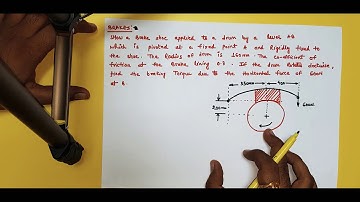 BRAKES:-
Show a Brake shoe applied to a drum by a lever AB
which is pivoted at a fixed point A and Rigidly fixed to
the shoe. The Radius of drum is 160mm. The co-efficient of
friction at the Brake lining 0.3. If the drum Rotates clockwise,
find the braking Torque due to the Horizontal force of 600N
at B.
350mm
600N